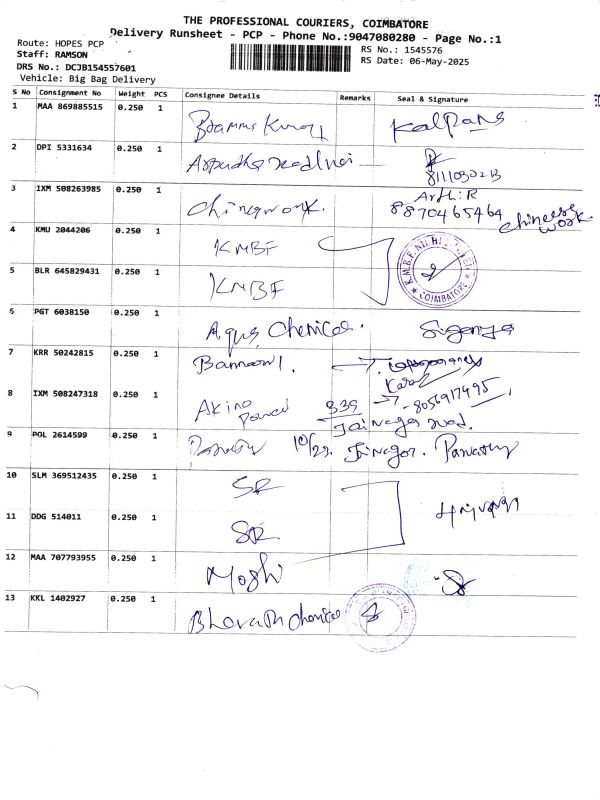 THE PROFESSIONAL COURIERS, COIMBATORE
Delivery Runsheet - PCP - Phone No.:9047080280 - Page No.:1
Route: HOPES PCP
Staff: RAMSON
DRS No.: DCJB154557601
Vehicle: Big Bag Delivery
RS No.: 1545576
RS Date: 06-May-2025
S No Consignment No Weight PCS Consignee Details Remarks Seal & Signature
1 MAA 869885515 0.250 1 Kalpana
2 DPI 5331634 0.250 1
3 IXM 508263985 0.250 1 Arthi R
8870465464
Chineese work
4 KMU 2044206 0.250 1 KMBF
COIMBATORE
5 BLR 645829431 0.250 1 KMBF
6 PGT 6038150 0.250 1 Aqua Chemical
7 KRR 50242815 0.250 1
8 IXM 508247318 0.250 1 Akino 339 8056917495
Jai nagar road
9 POL 2614599 0.250 1 Jainagar. Parvathy
10 SLM 369512435 0.250 1 SR
11 DDG 514011 0.250 1 SR
12 MAA 707793955 0.250 1 Moshi
13 KKL 1402927 0.250 1 Bharath chemical